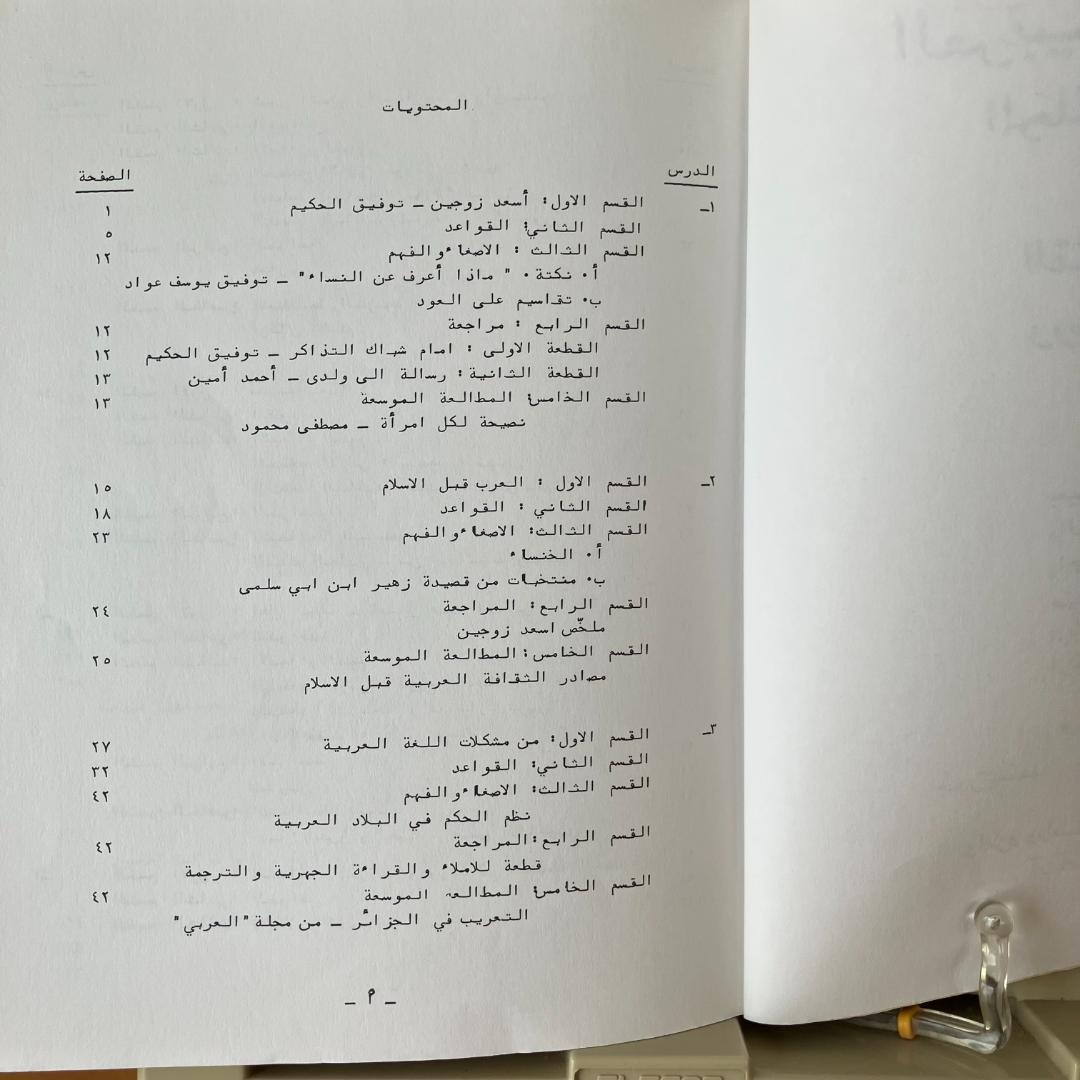 المحتويات
الدرس الصفحة
١ـ القسم الاول: أسعد زوجين ـ توفيق الحكيم ١
القسم الثاني: القواعد ٥
القسم الثالث : الاصغاء والفهم ١٢
أ٠ نكتة ٠ " ماذا أعرف عن النساء" ـ توفيق يوسف عواد
ب٠ تقاسيم على العود
القسم الرابع : مراجعة ١٢
القطعة الاولى : امام شباك التذاكر ـ توفيق الحكيم ١٢
القطعة الثانية : رسالة الى ولدى ـ أحمد أمين ١٣
القسم الخامس: المطالعة الموسعة ١٣
نصيحة لكل امرأة ـ مصطفى محمود
٢ـ القسم الاول : العرب قبل الاسلام ١٥
القسم الثاني : القواعد ١٨
القسم الثالث: الاصغاء والفهم ٢٣
أ٠ الخنساء
ب٠ منتخبات من قصيدة زهير ابن ابي سلمى
القسم الرابع: المراجعة ٢٤
ملخّص اسعد زوجين
القسم الخامس: المطالعة الموسعة ٢٥
مصادر الثقافة العربية قبل الاسلام
٣ـ القسم الاول: من مشكلات اللغة العربية ٢٧
القسم الثاني: القواعد ٣٢
القسم الثالث: الاصغاء والفهم ٤٢
نظم الحكم في البلاد العربية
القسم الرابع:المراجعة ٤٢
قطعة للاملاء والقراءة الجهرية والترجمة
القسم الخامس: المطالعه الموسعة ٤٢
التعريب في الجزائر ـ من مجلة "العربي"
ـ ٩ ـ